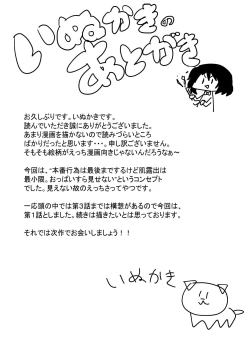 いぬかきの
あとがき
お久しぶりです。いぬかきです。
読んでいただき誠にありがとうございました。
あまり漫画を描かないので読みづらいところ
ばかりだったと思います・・・。申し訳ございません。
そもそも絵柄がえっち漫画向きじゃないんだろうなぁ～
今回は、“本番行為は最後まですけど肌露出は
最小限。おっぱいすら見せない”というコンセプト
でした。見えない故のえっちさってやつです。
一応頭の中では第3話までは構想があるので今回は、
第1話としました。続きは描きたいとは思っております。
それでは次作でお会いしましょう！！
いぬかき